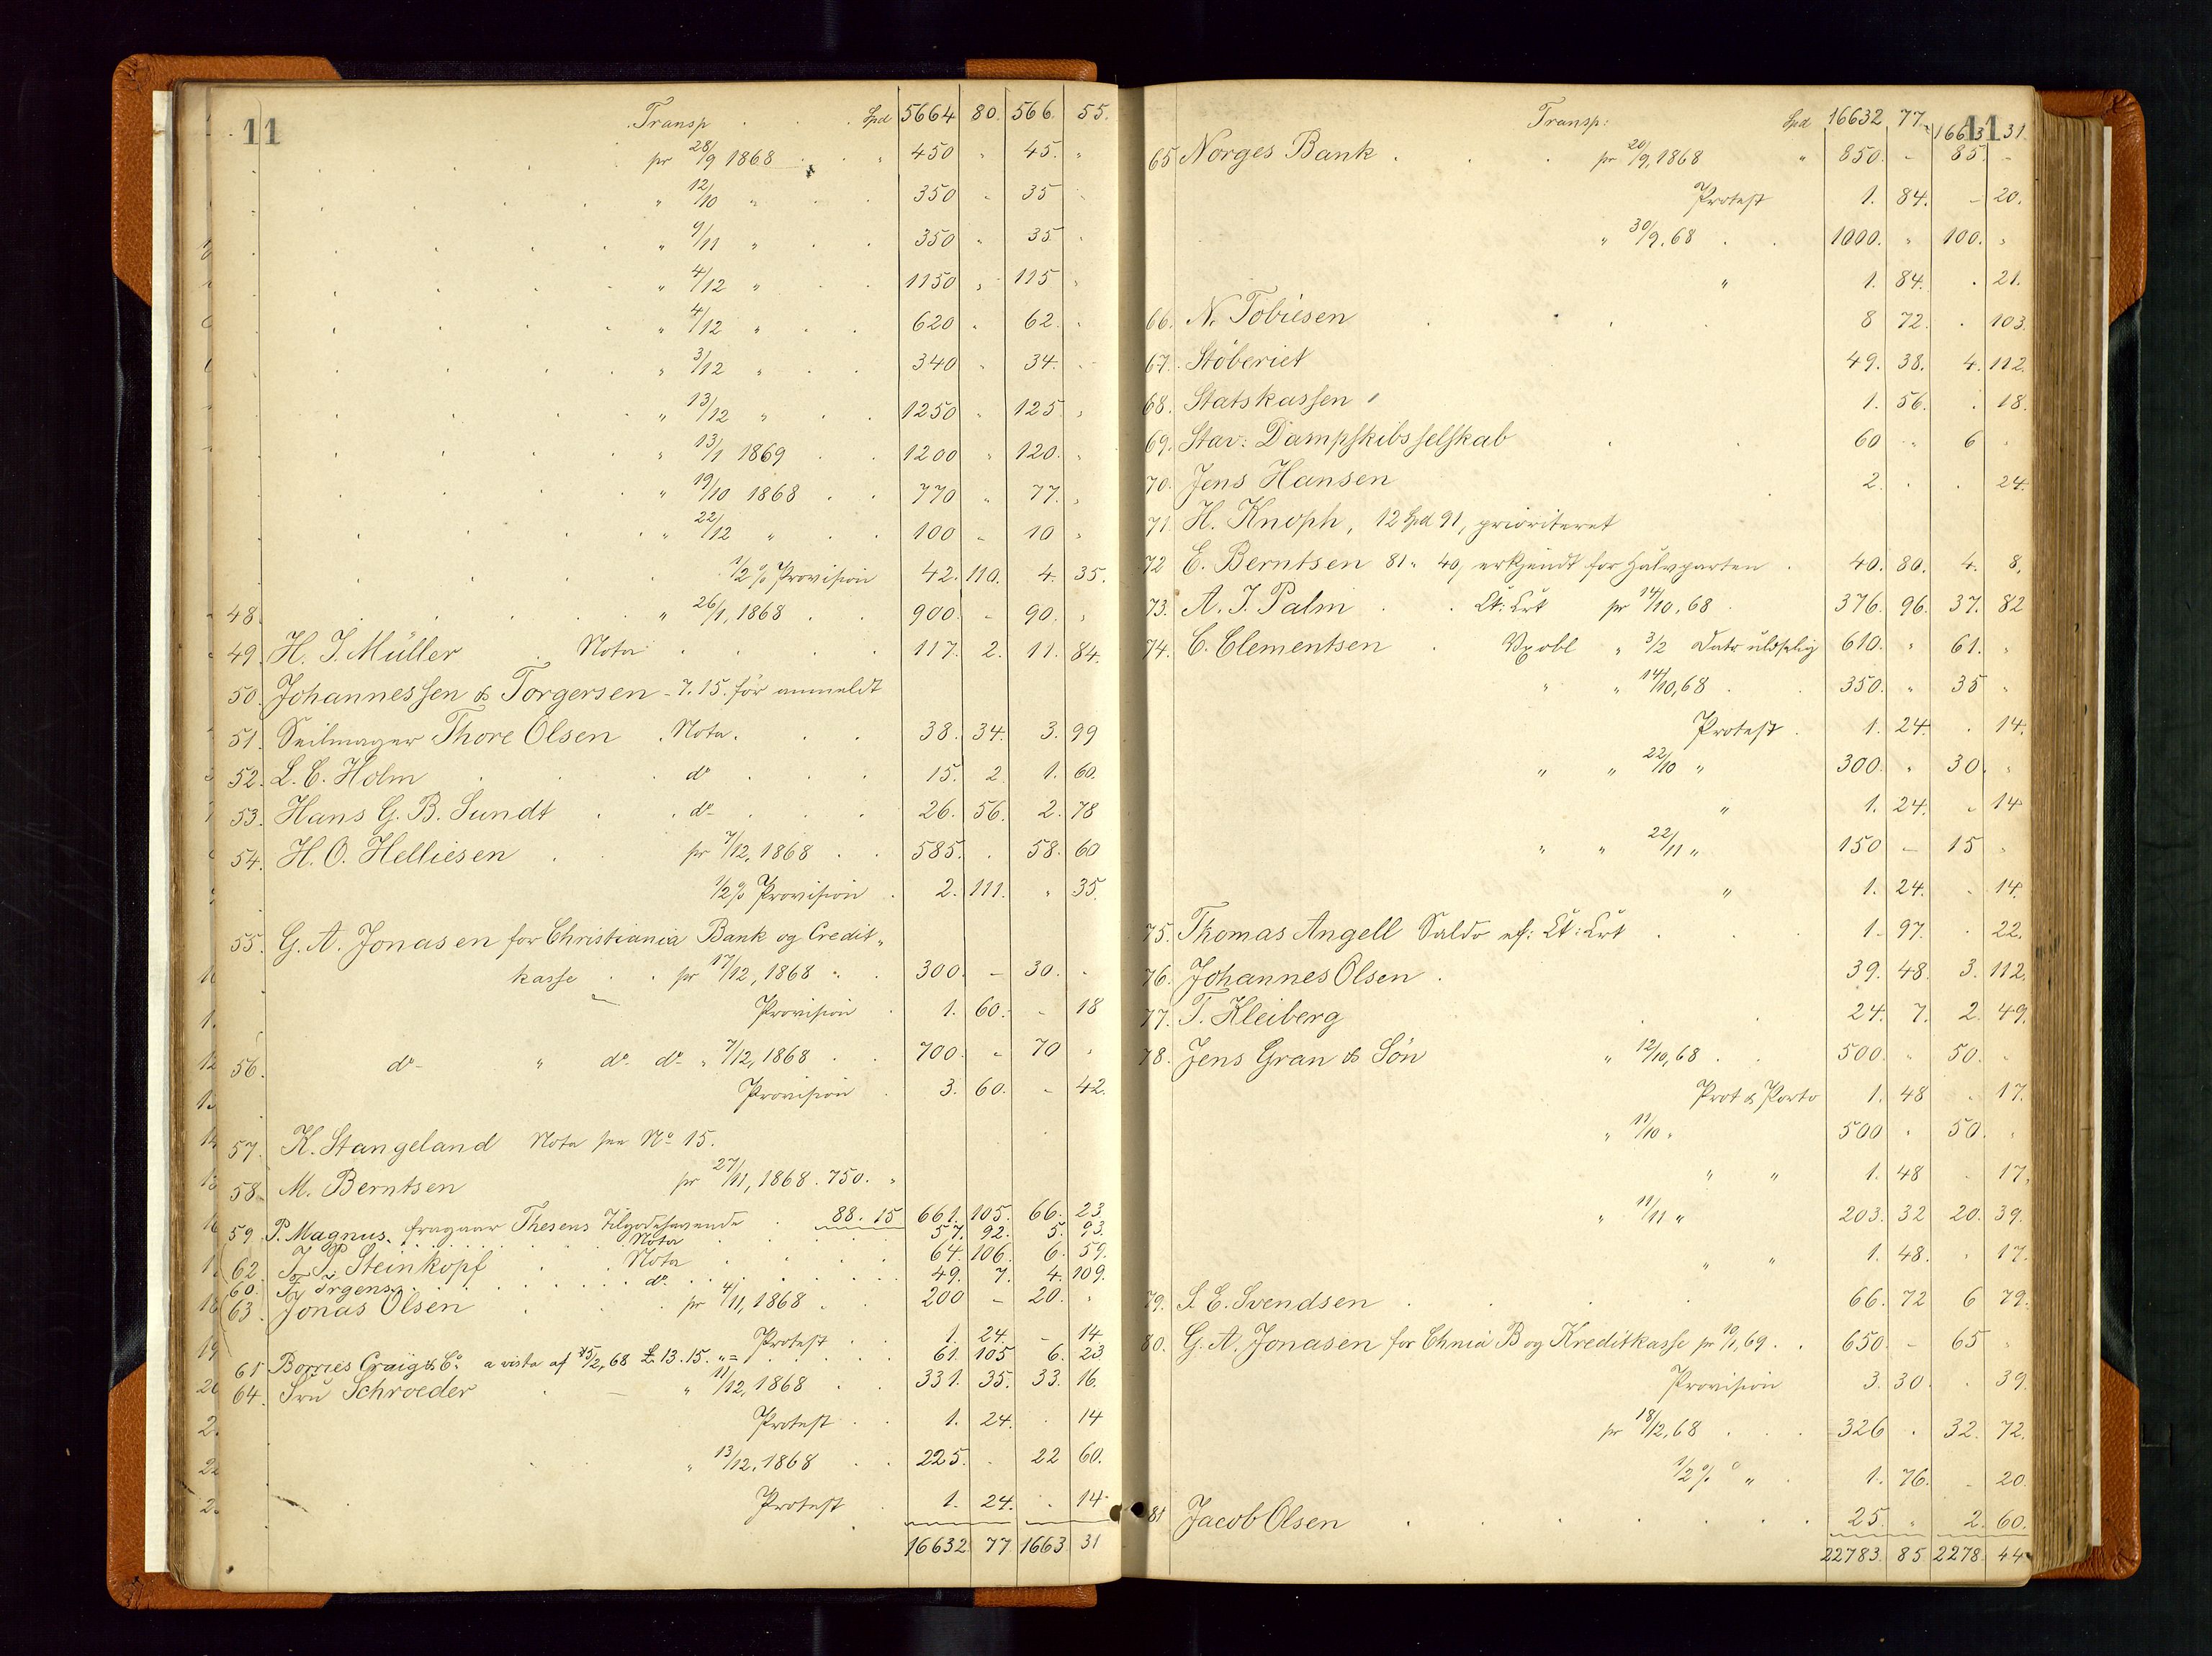 11
Transp . . . Spd 5664 80. 566. 55.
pr 28/9 1868 . . " 450 " 45. "
" 12/10 " . . 350 . 35 .
" 9/11 " . . 350 " 35 .
" 4/12 " . . 1150 " 115 "
" 4/12 " . . 620 . 62. .
" 3/12 " . . 340 " 34. .
" 13/12 " . . 1250 " 125 "
" 13/1 1869 . . 1200 " 120. "
" 19/10 1868 . . 770 " 77. "
" 22/12 " . . 100 " 10 "
1/2 % Provision 42. 110. 4. 35.
48. " 26/1, 1868 . . 900. - 90. "
49. H. J. Müller . Nota . . . 117. 2. 11. 84.
50. Johannessen & Torgersen - 7. 15. før anmeldt
51. Seilmager Thore Olsen . Nota . . . 38. 34. 3. 99
52. L. C. Holm . . . do . . . 15. 2 1. 60.
53. Hans G. B. Sundt . . do . . . 26. 56. 2. 78
54. H. O. Helliesen . . pr 7/12, 1868 . . 585. . 58. 60
1/2 % Provision . 2. 111. " 35.
55. G. A. Jonasen for Christiania Bank og Credit-
kasse . . pr 17/12, 1868 . . 300. - 30. .
Provision . 1. 60. - 18
56. do " do do " 7/12, 1868 . . 700. - 70 "
Provision . 3. 60. - 42.
57. K. Stangeland Nota se No 15.
58. M. Berntsen pr 27/11, 1868 . 750. "
fragaar Thesens Tilgodehavende . 88. 15 661. 105. 66. 23.
59 P. Magnus. . . . Nota . . . 57. 92. 5. 93.
62. J. P. Steinkopf . . Nota . . . 64. 106. 6. 59.
60. . . . do . . . 49. 7. 4. 109.
63. Jonas Olsen . . . pr 4/11, 1868 . . 200 - 20. "
Protest . . 1. 24. - 14
61 Borries Craig & Co. a vista af 25/2, 68 £ 13. 15. " = . . . 61. 105 6. 23
64. Fru Schroeder . - " 11/12, 1868 . . 331. 35. 33. 16.
Protest . . 1. 24. . 14
" 13/12, 1868 . . 225. . 22 60.
Protest . 1. 24. . 14
16632. 77 1663. 31
11
Transp: Spd 16632 77. 1663 31.
65 Norges Bank . . pr 20/9, 1868 " 850. - 85. -
Protest 1. 84. - 20.
" 30/9, 68 . . 1000. " 100. "
" 1. 84. . 21.
66. N. Tobiesen . . . 8 72. . 103.
67. Støberiet 49. 38. 4. 112.
68. Statskassen 1. 56. . 18.
69. Stav: Dampskibsselskab . . 60 " 6 .
70. Jens Hansen . 2. . . 24.
71. H. Knoph, 12 Spd 91, prioriteret
72 E. Berntsen 81 " 40, erkjendt for Halvparten . 40. 80. 4. 8.
73. A. J. Palm . . Ct: Crt pr 14/10, 68 . 376. 96. 37. 82
74. C. Clementsen . Vxobl " 3/2 Dato 610. " 61. "
" " 14/10, 68 . . 350. " 35 "
Protest . 1. 24. . 14.
" " 22/10 " 300. " 30. "
" 1. 24. . 14
" " 22/11 " 150 - 15 "
" 1. 24. . 14.
75. Thomas Angell Saldo af: Ct: Crt . . . 1. 97. . 22.
76. Johannes Olsen . 39. 48. 3. 112.
77. T. Kleiberg . . 24. 7. 2. 49.
78. Jens Gran & Søn " 12/10, 68 . . 500. " 50. "
Prot & Porto 1. 48 . 17.
" 11/10 " 500 " 50. "
" " 1. 48 . 17.
" 11/11 " 203. 32 20. 39.
" " 1. 48. . 17.
79. S. E. Svendsen . . . 66. 72 6 79.
80. G. A. Jonasen for Chnia B og Kreditkasse pr 10/1, 69 . . 650. - 65 "
Provision 3. 30. . 39.
pr 18/12, 68 . . . 326 . 32. 72.
1/2 % " . 1. 76. . 20
81 Jacob Olsen . . . . . 25. " 2. 60.
22783. 85 2278. 44